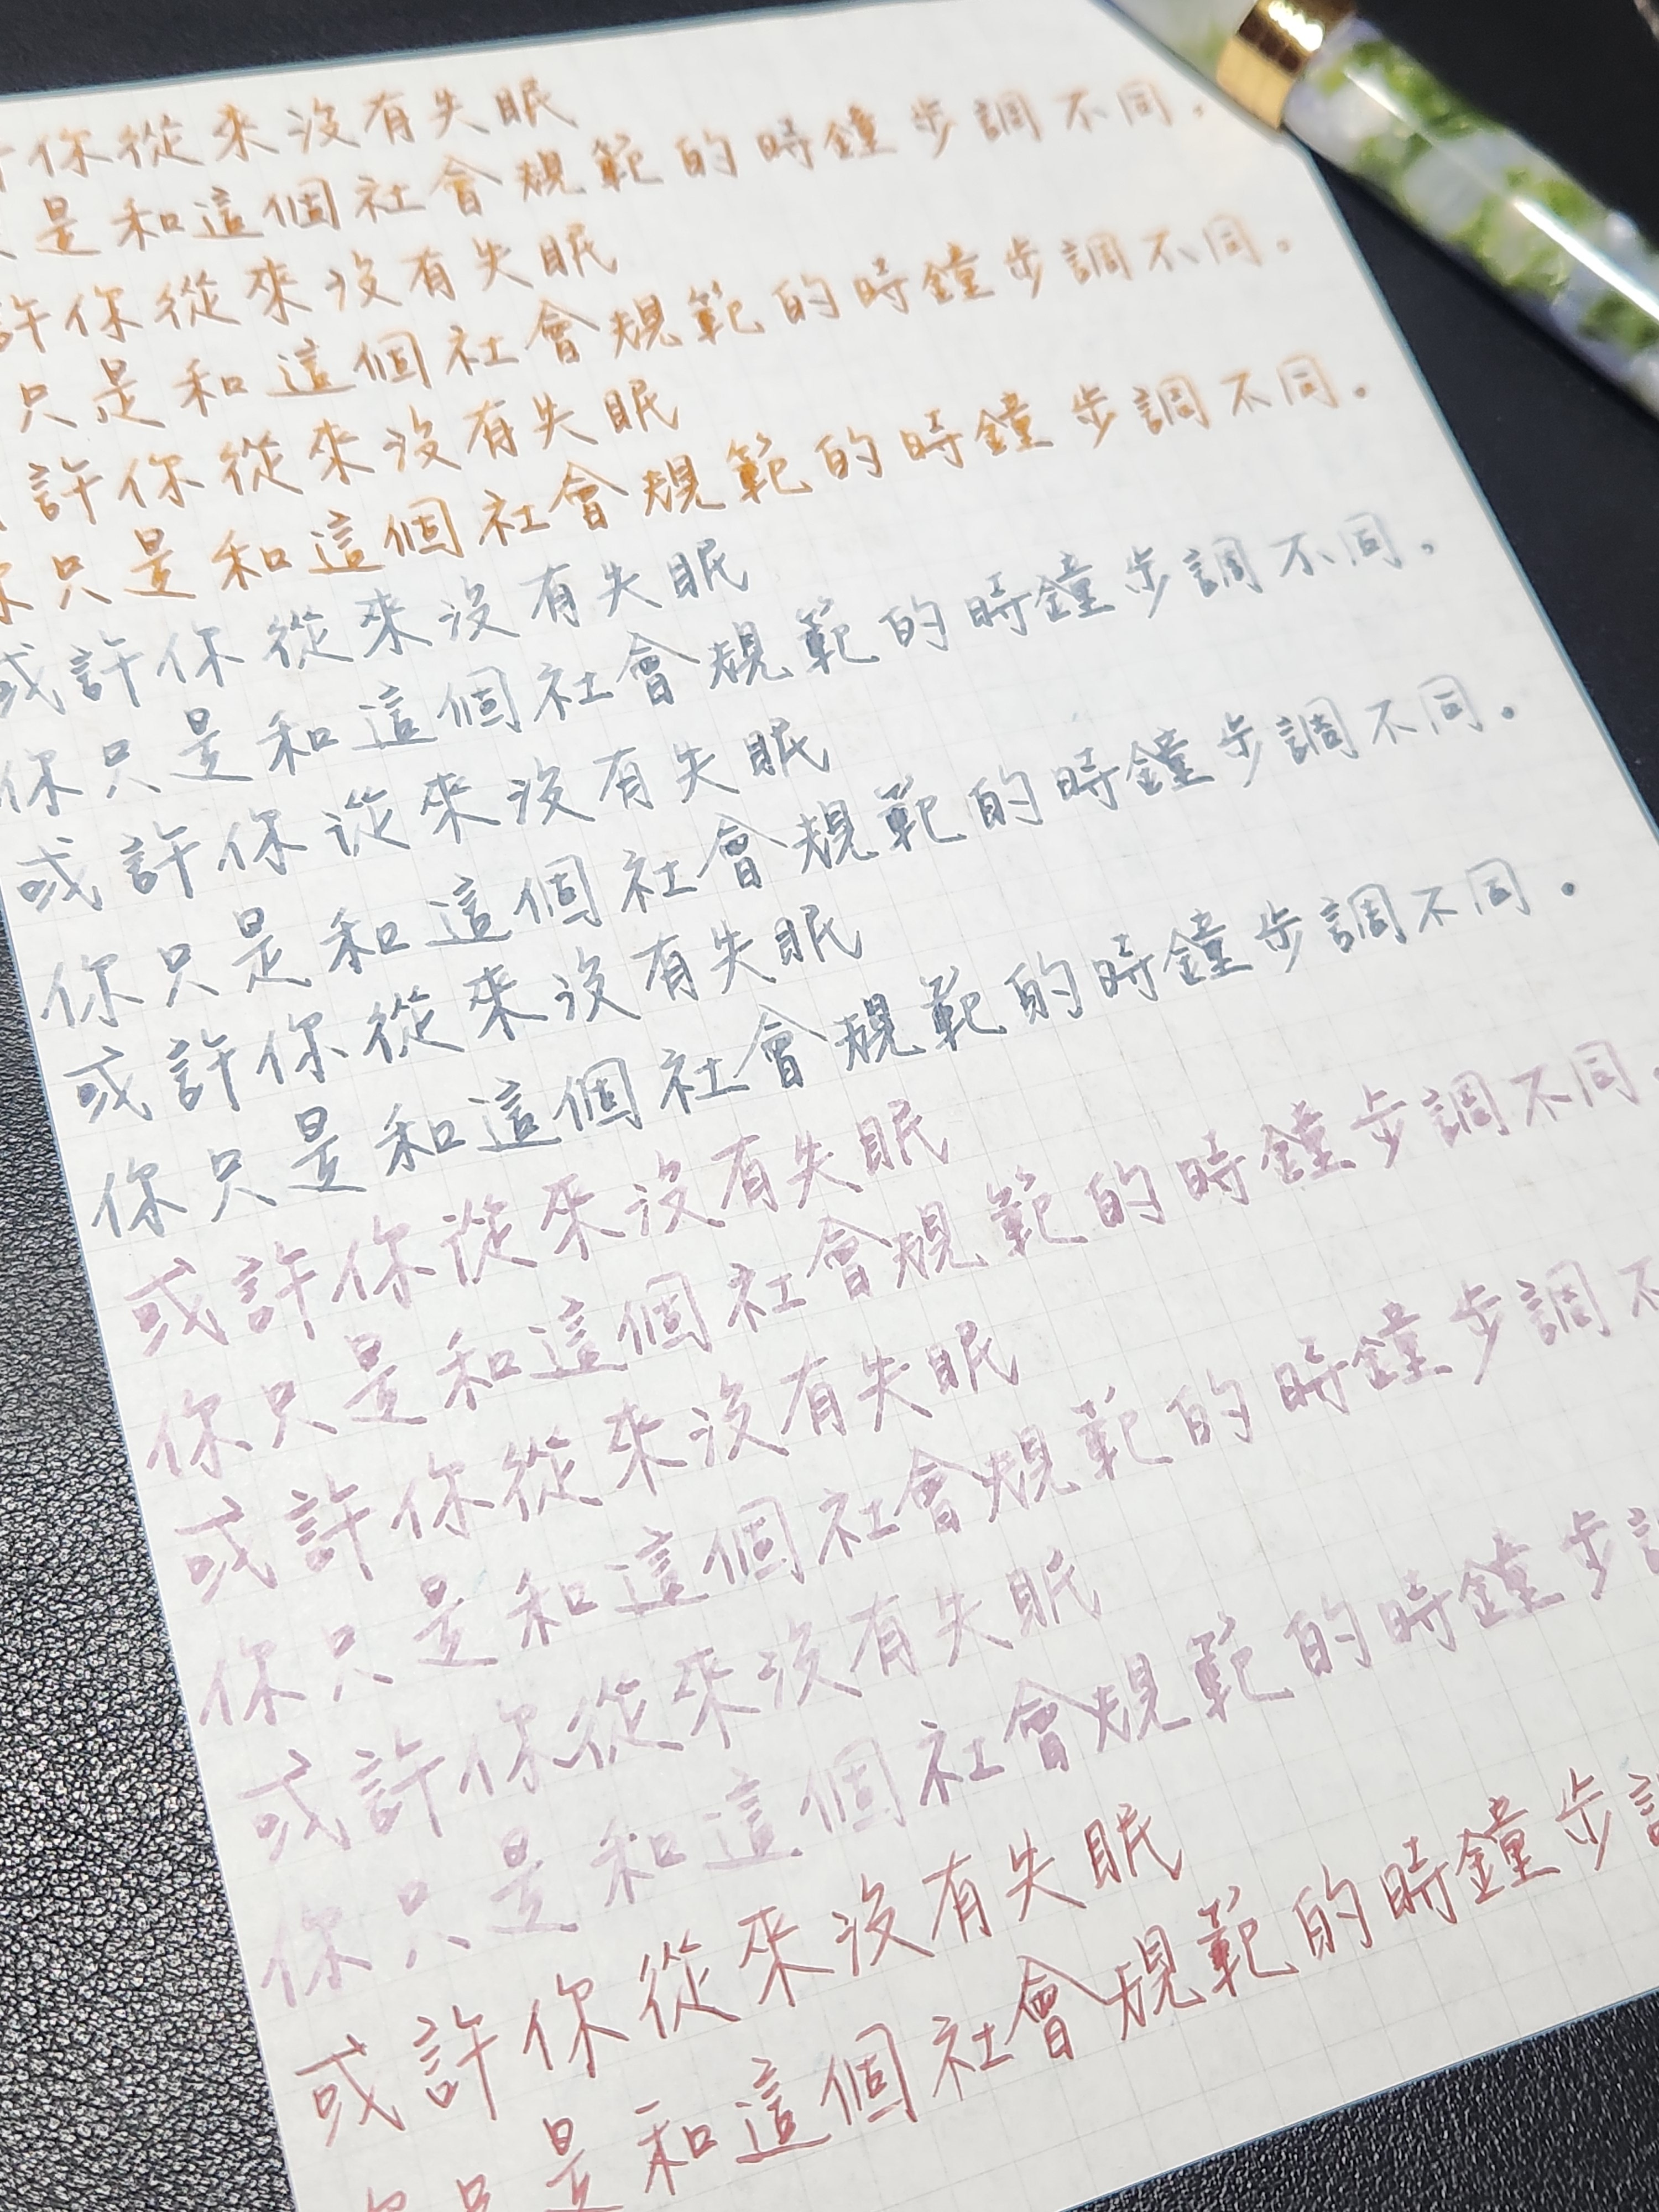 你從來沒有失眠
是和這個社會規範的時鐘步調不同。
許你從來沒有失眠
只是和這個社會規範的時鐘步調不同。
許你從來沒有失眠
你只是和這個社會規範的時鐘步調不同。
或許你從來沒有失眠
你只是和這個社會規範的時鐘步調不同。
或許你從來沒有失眠
你只是和這個社會規範的時鐘步調不同。
或許你從來沒有失眠
你只是和這個社會規範的時鐘步調不同。
或許你從來沒有失眠
你只是和這個社會規範的時鐘步調不同。
或許你從來沒有失眠
你只是和這個社會規範的時鐘步調不
或許你從來沒有失眠
你只是和這個社會規範的時鐘步
或許你從來沒有失眠
你只是和這個社會規範的時鐘步